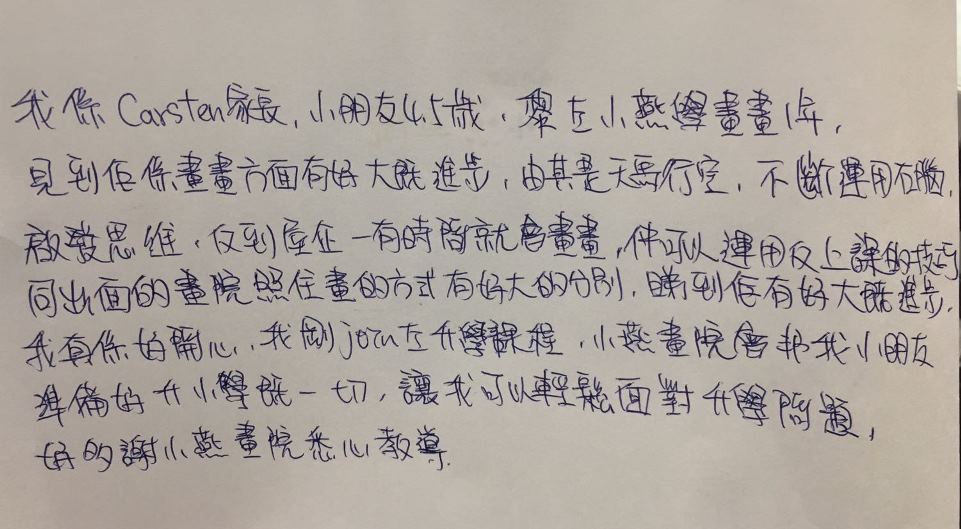 我係Carsten家長,小朋友4.5歲,黎左小燕學畫畫1年,
見到佢係畫畫方面有好大既進步,由其是天馬行空,不斷運用右腦,
啟發思維,反到屋企一有時間就會畫畫,佢可以運用反上課的技巧
同出面的畫院照住畫的方式有好大的分別,睇到佢有好大既進步,
我真係好開心,我剛join左升學課程,小燕畫院會幫我小朋友
準備好升小學既一切,讓我可以輕鬆面對升學問題,
好的謝小燕畫院悉心教導.